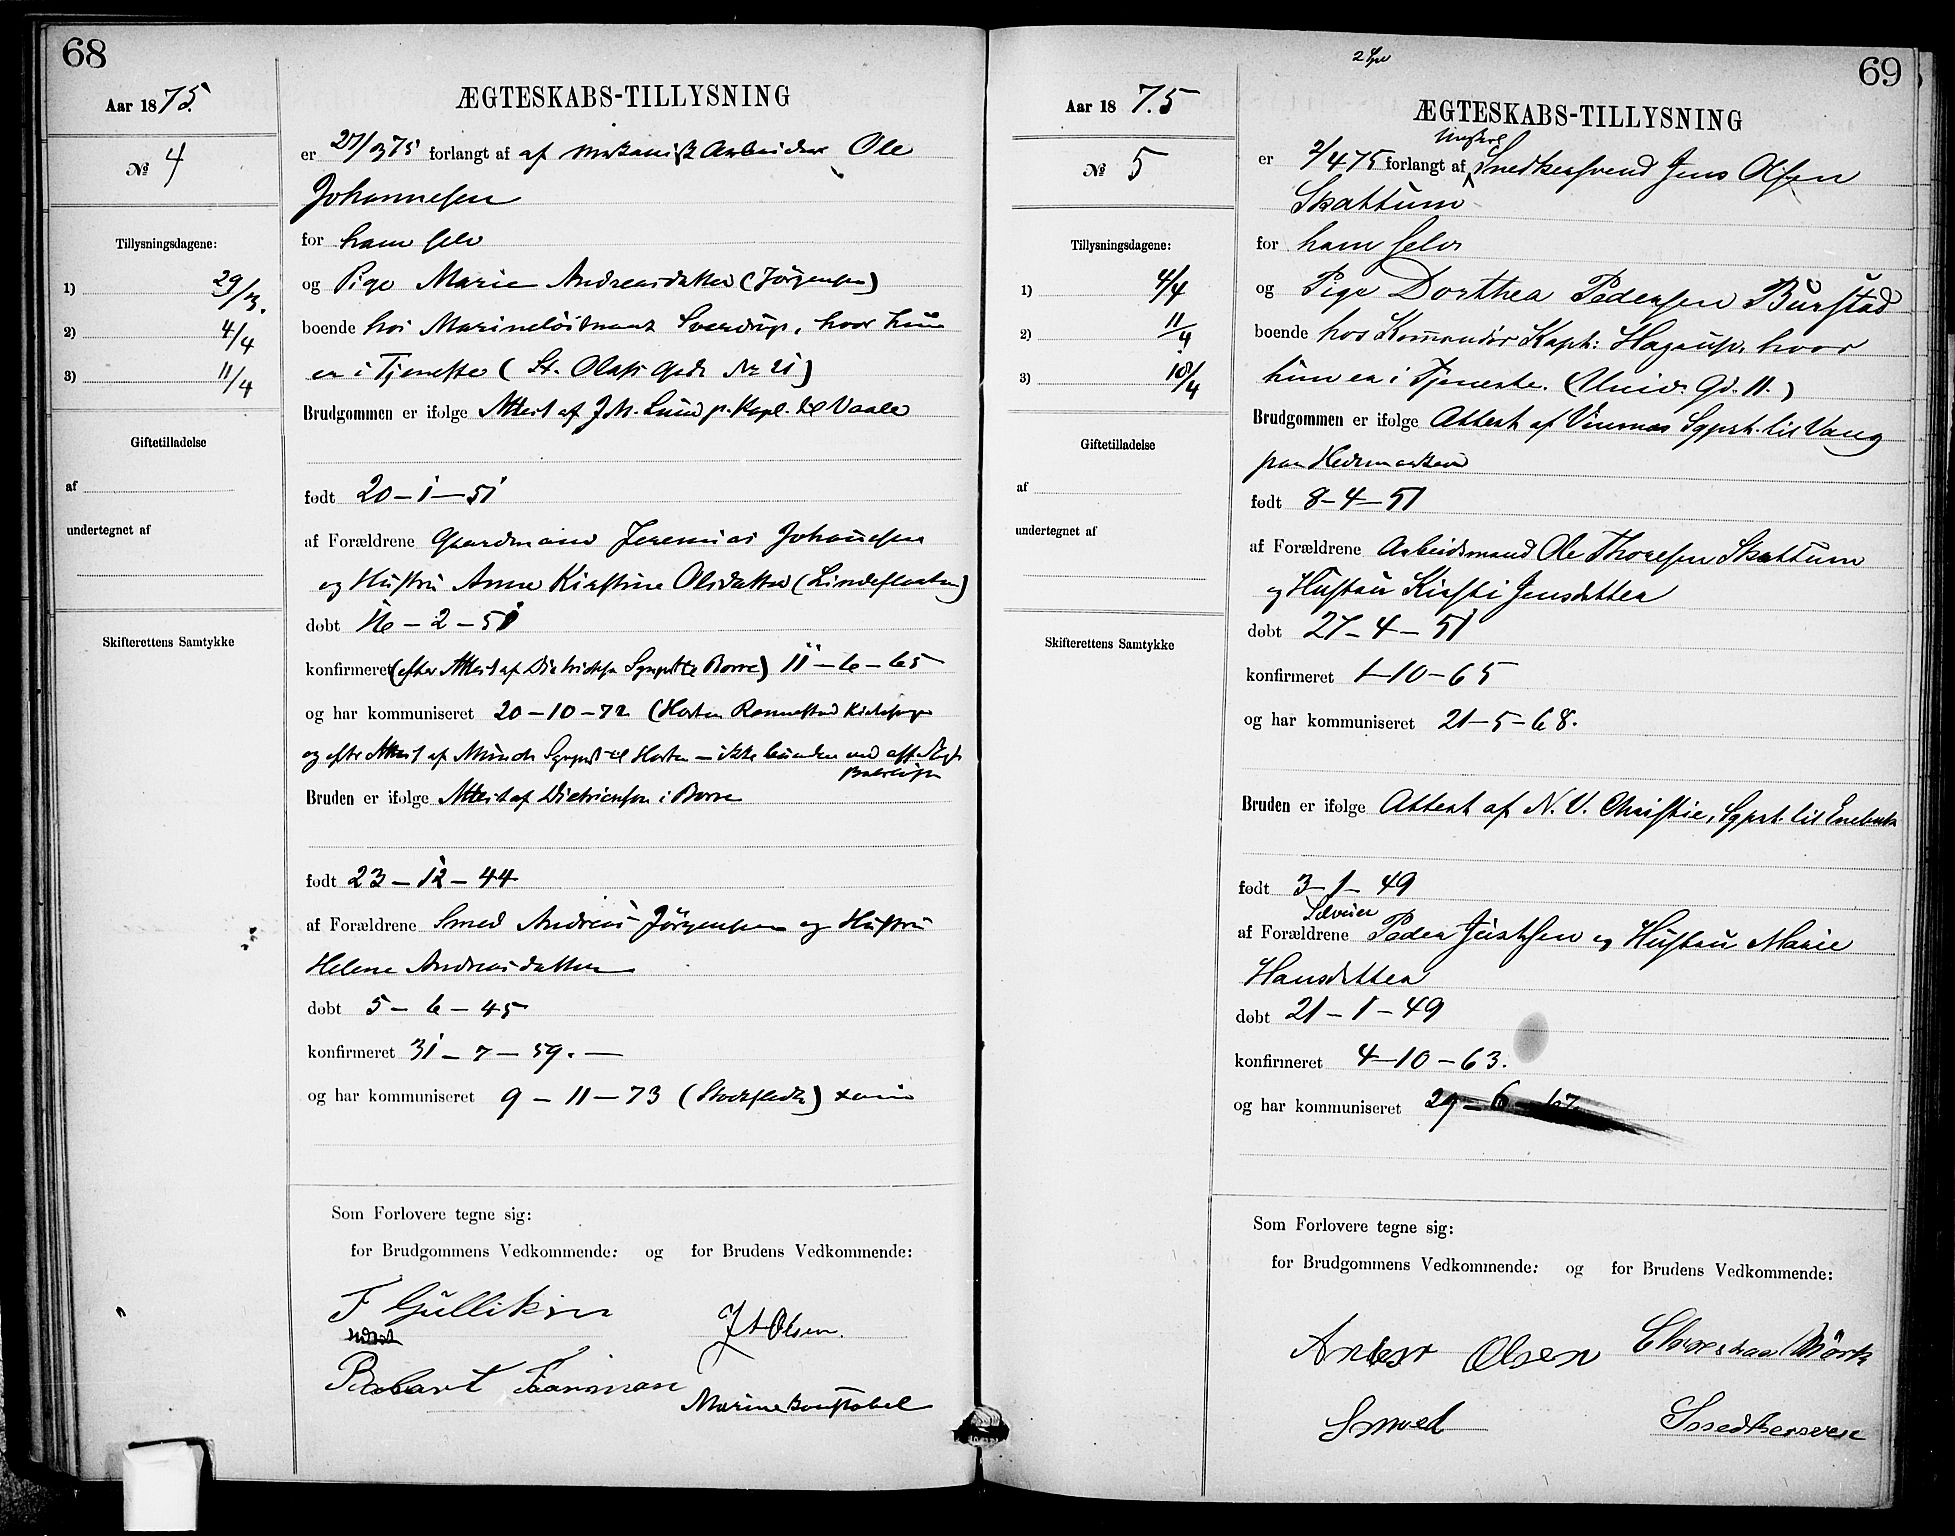 68
Aar 1875.
ÆGTESKABS-TILLYSNING
№ 4
er 27/3 75 forlangt af af mekanisk Arbeider Ole
Johannesen
Tillysningsdagene:
for ham selv
1) 29/3.
og Pige Marie Andreasdatter (Jørgensen)
2) 4/4
boende hos Marineløitnant Sverdrup, hvor hun
3) 11/4
er i Tjeneste (St. Olafs Gade Nr 21)
Brudgommen er ifølge Attest af J. M. Lund p. Kapl. til Vaale
Giftetilladelse
af
født 20-1-51
undertegnet af
af Forældrene Gaardmand Jeremias Johannesen
og Hustru Anne Kirstine Olsdatter (Lindefladten)
døbt 16-2-51
Skifterettens Samtykke
konfirmeret (efter Attest af Dietrichson Sgprst til Borre) 11-6-65
og har kommuniseret 20-10-72 (Horten
og efter Attest af Munch Sgprst til Horten - ikke bunden ved
Bruden er ifølge Attest af Dietrichson i Borre
født 23-12-44
af Forældrene Smed Andreas Jørgensen og Hustru
Helene Andreasdatter
døbt 5-6-45
konfirmeret 31-7-59.-
og har kommuniseret 9-11-73 (Stockfleth)
Som Forlovere tegne sig:
for Brudgommens Vedkommende: og for Brudens Vedkommende:
F Gulliksen
J A Olsen.
Robert
Marinekonstabel
2
69
Aar 1875
ÆGTESKABS-TILLYSNING
№ 5
Ungkarl
er 2/4 75 forlangt af Snedkersvend Jens Olsen
Skattum
Tillysningsdagene:
for ham selv
1) 4/4
og Pige Dorthea Pedersen Burstad
2) 11/4
boende hos Kommandør Kapt: Hagerup, hvor
3) 18/4
hun er i Tjeneste. (Univ. Gd. 11.)
Brudgommen er ifølge Attest af Sgprst. til Vang
paa Hedemarken
Giftetilladelse
af
født 8-4-51
undertegnet af
af Forældrene Arbeidsmand Ole Thoresen Skattum
og Hustru Kirsti Jensdatter
døbt 27-4-51
Skifterettens Samtykke
konfirmeret 1-10-65
og har kommuniseret 21-5-68.
Bruden er ifølge Attest af N. V. Christie, Sgprst. til Enebak
født 3-1-49
Selveier
af Forældrene Peder Justsen og Hustru Marie
Hansdatter
døbt 21-1-49
konfirmeret 4-10-63.
og har kommuniseret 29-6-67
Som Forlovere tegne sig:
for Brudgommens Vedkommende: og for Brudens Vedkommende:
Anders Olsen
Mörk
Smed
Snedkersven